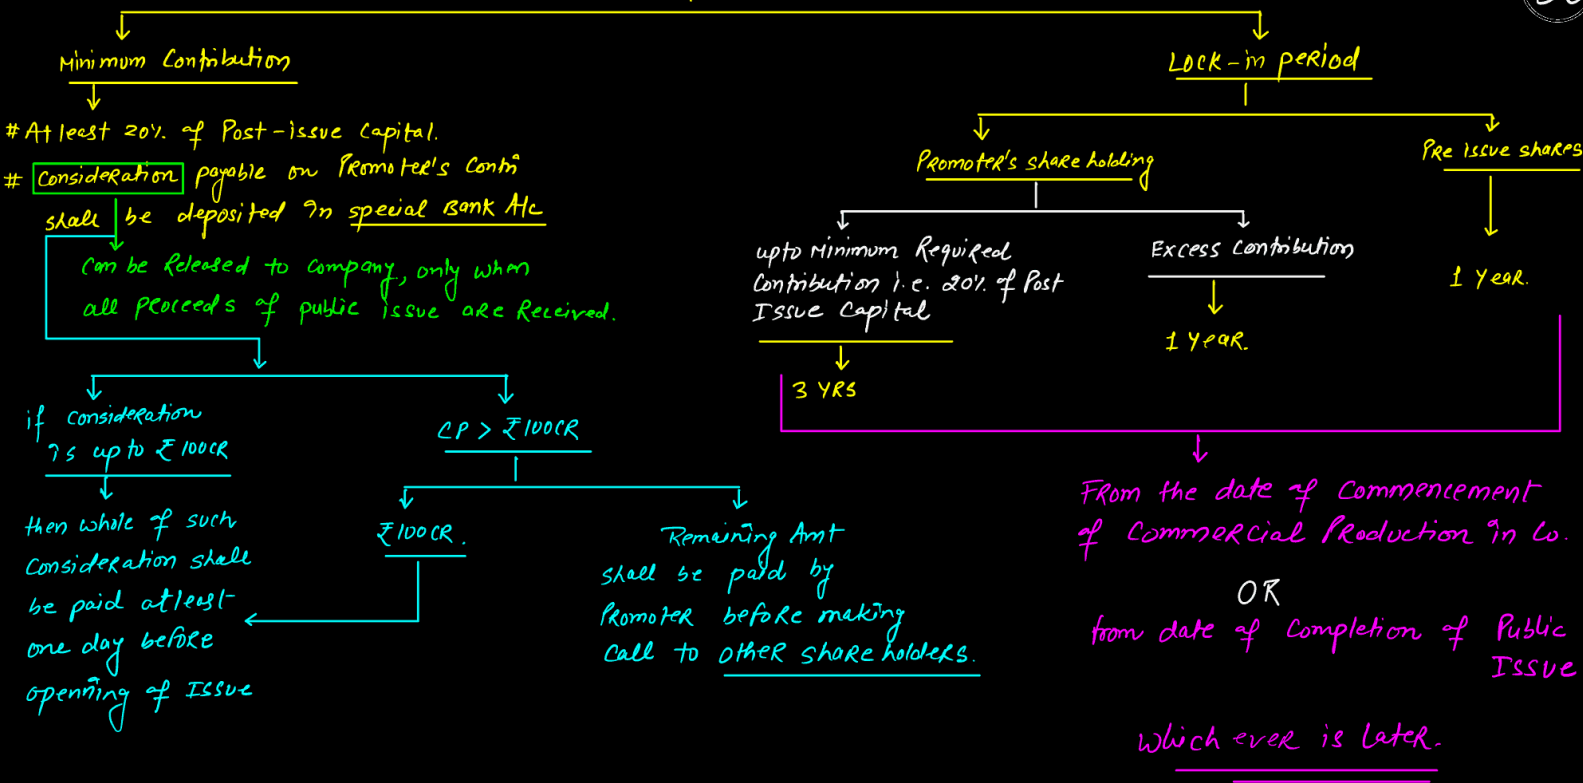 Minimum Contribution
# At least 20% of Post-issue Capital.
# Consideration payable on Promoter's Contn
shall be deposited in special Bank A/c
Can be Released to Company, only when
all proceeds of public issue are Received.
if Consideration
is up to ₹100CR
then whole of such
Consideration shall
be paid atleast
one day before
openning of Issue
CP > ₹100CR
₹100CR.
Remaining Amt
shall be paid by
Promoter before making
Call to other shareholders.
Lock-in period
Promoter's shareholding
upto Minimum Required
Contribution i.e. 20% of Post
Issue Capital
3 YRS
Excess Contribution
1 Year.
Pre issue shares
1 Year.
From the date of Commencement
of Commercial Production in Co.
OR
from date of Completion of Public
Issue
which ever is later.